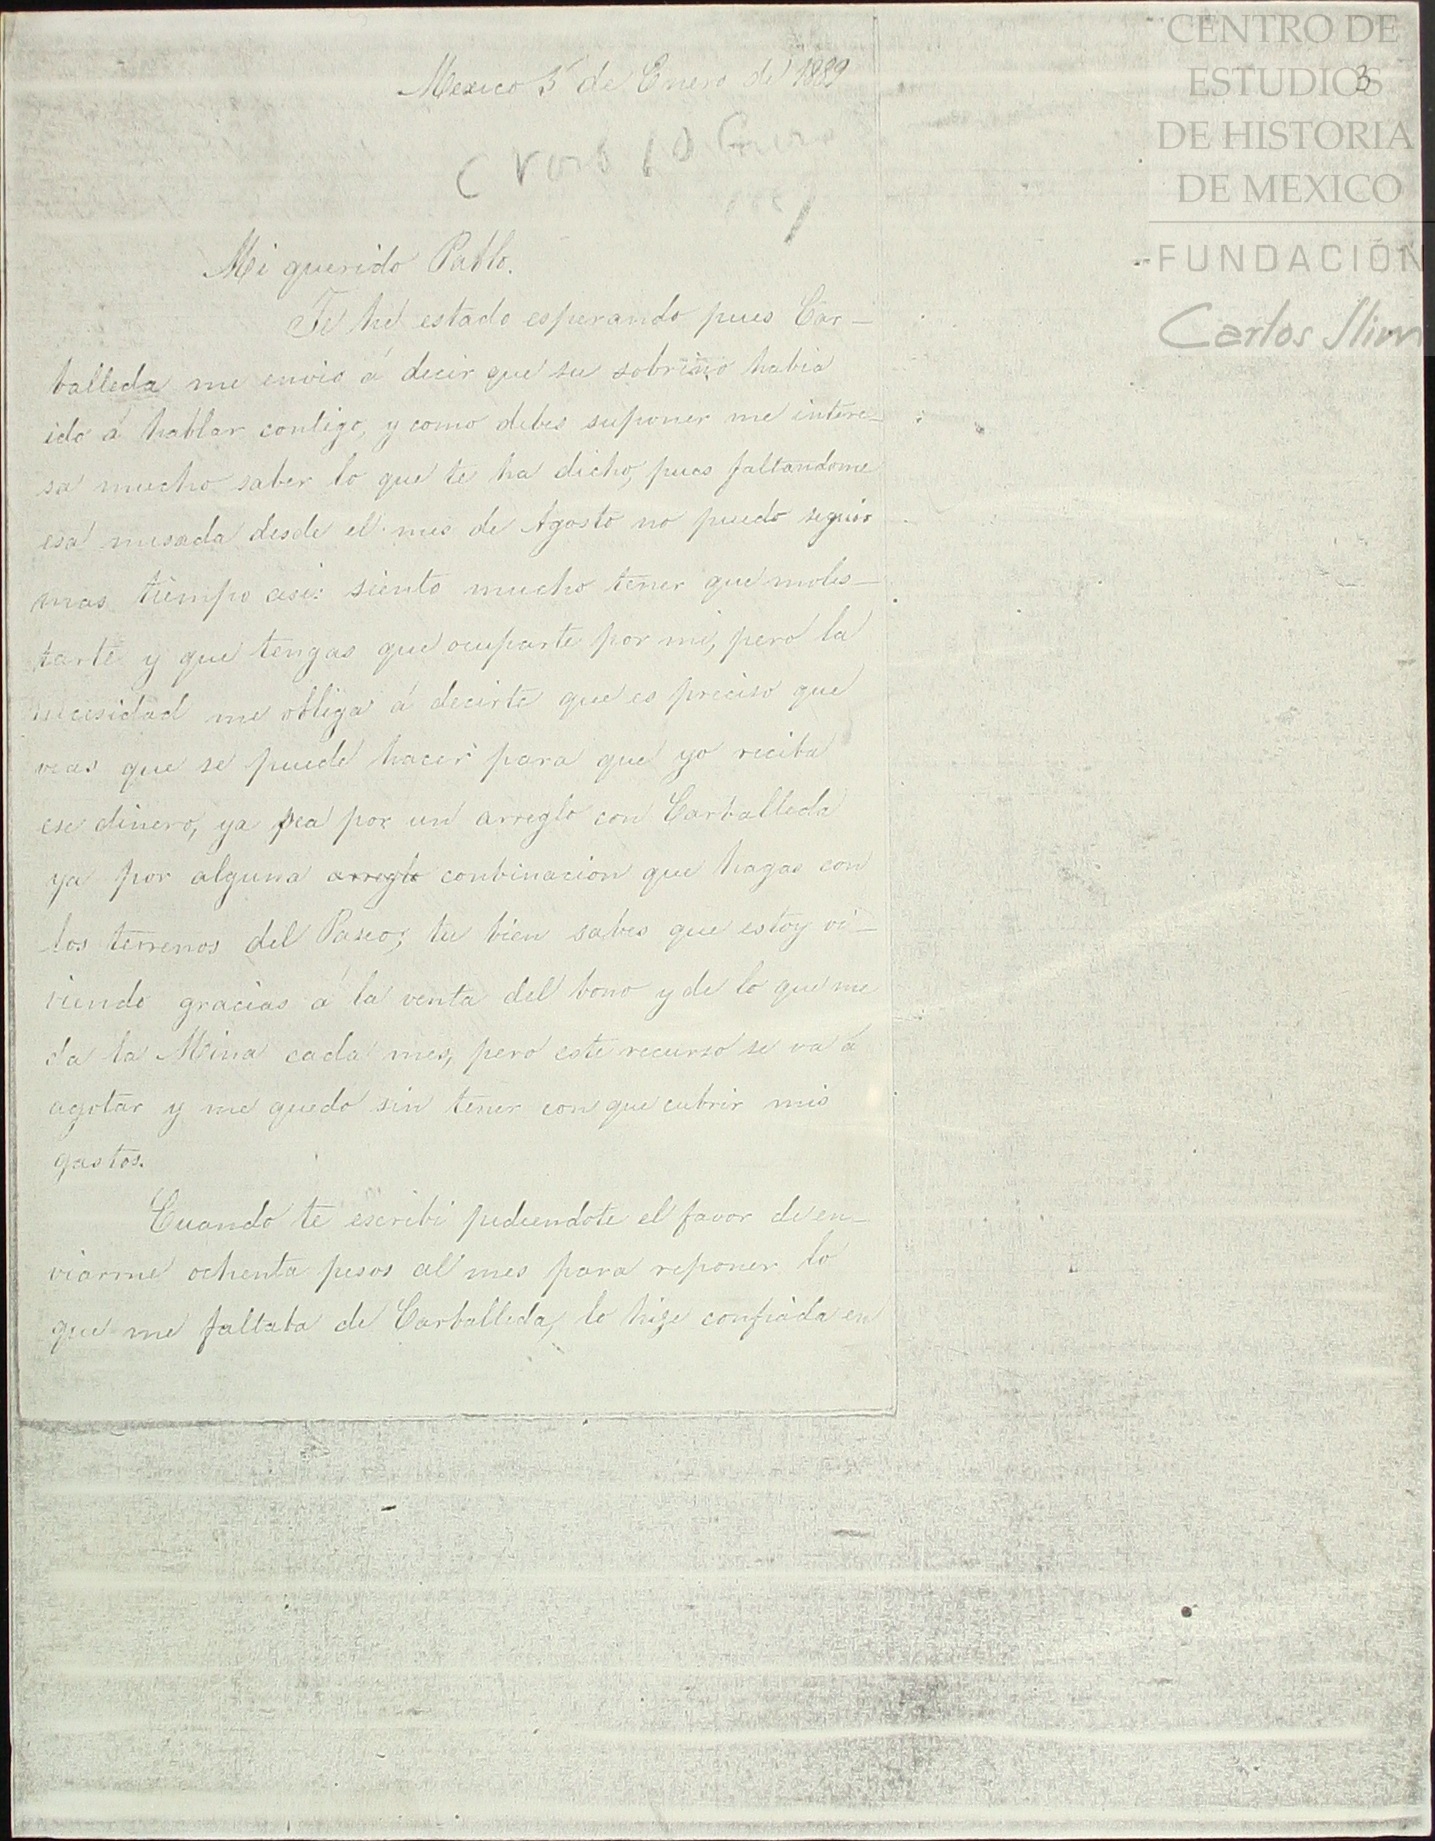 CENTRO DE
ESTUDIOS
DE HISTORIA
DE MEXICO
FUNDACIÓN
Carlos Slim
3
Mexico 5 de Enero de 1889
Enero
Mi querido Pablo.
Te he estado esperando pues Car-
balleda me envio á decir que su sobrino habia
ido á hablar contigo, y como debes suponer me intere-
sa mucho saber lo que te ha dicho, pues faltandome
esa mesada desde el mes de Agosto no puedo seguir
mas tiempo asi: siento mucho tener que moles-
tarte y que tengas que ocuparte por mi, pero la
necesidad me obliga á decirte que es preciso que
veas que se puede hacer para que yo reciba
ese dinero, ya sea por un arreglo con Carballeda
ya por alguna arreglo conbinacion que hagas con
los terrenos del Paseo; tu bien sabes que estoy vi-
viendo gracias á la venta del bono y de lo que me
da la Mina cada mes, pero este recurso se va á
agotar y me quedo sin tener con que cubrir mis
gastos.
Cuando te escribi pidiendote el favor de en-
viarme ochenta pesos al mes para reponer lo
que me faltaba de Carballeda, lo hize confiada en